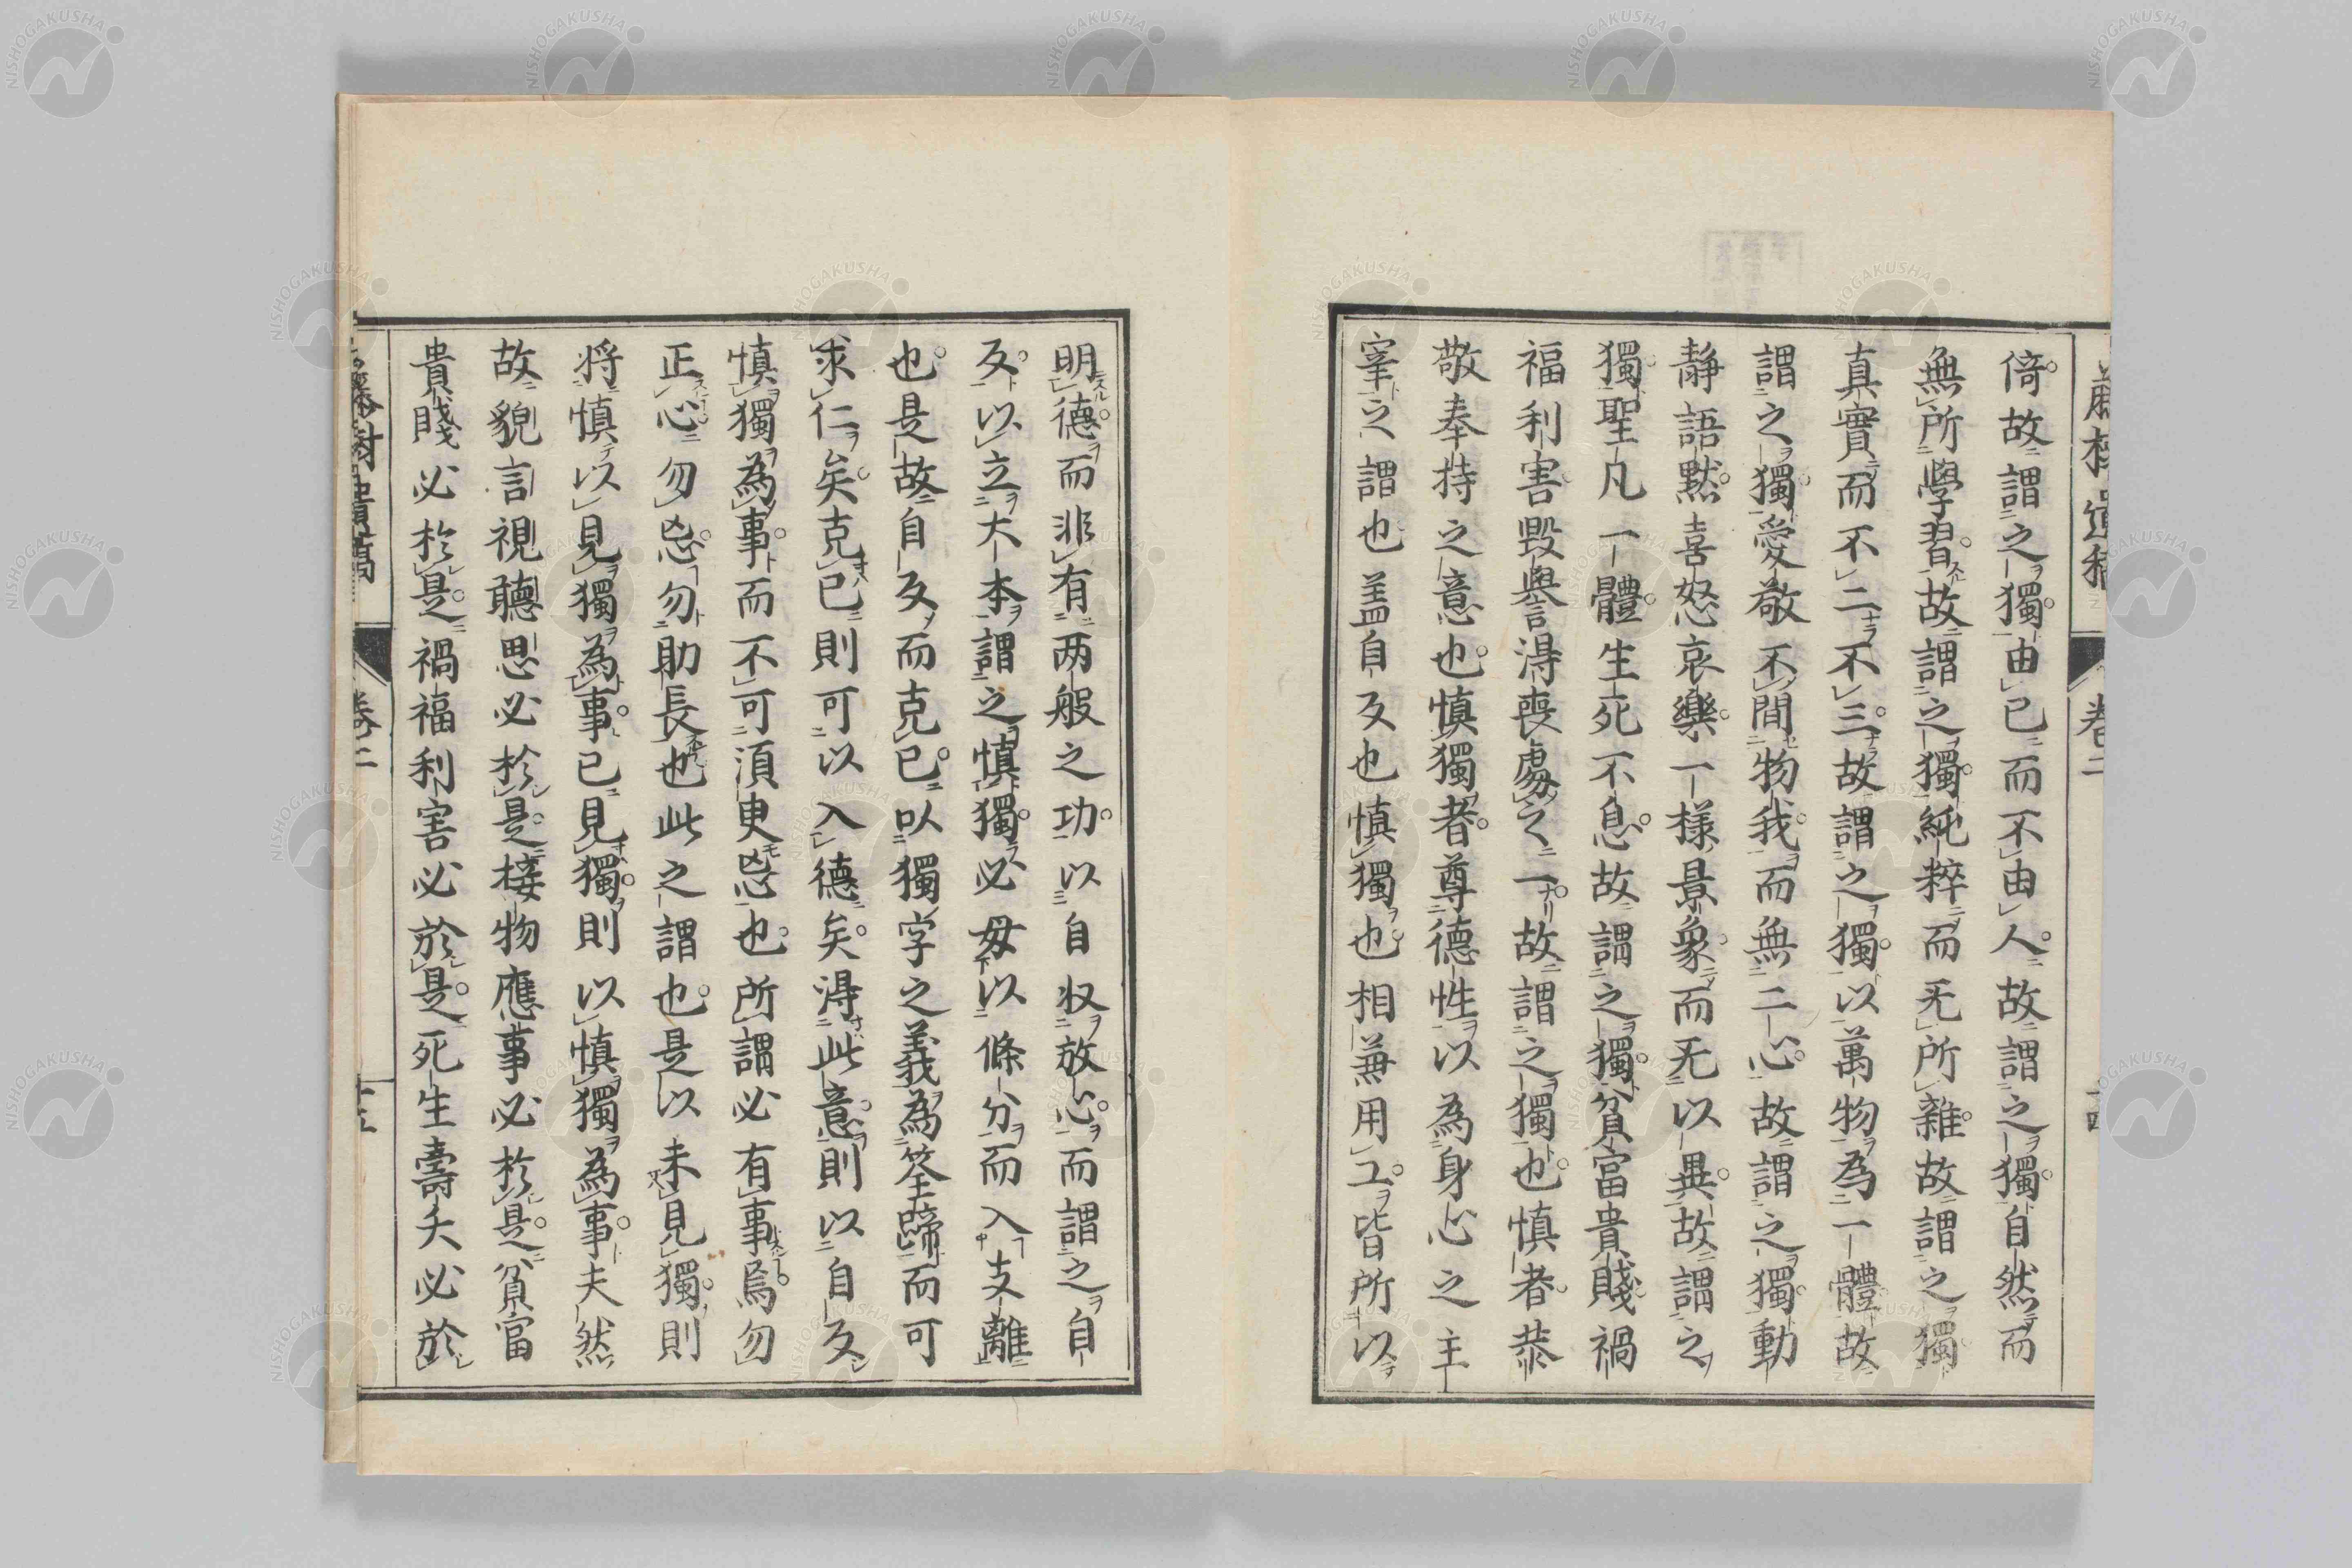 倚故謂之獨由己而不由人故謂之獨自然而
無所學習故謂之獨純粹而无所雜故謂之獨
真實而不二不三故謂之獨以萬物為一體故
謂之獨愛敬不間物我而無二心故謂之獨動
靜語默喜怒哀樂一樣景象而无以異故謂之
獨聖凡一體生死不息故謂之獨貧富貴賤禍
福利害毀譽得喪處之一故謂之獨也慎者恭
敬奉持之意也慎獨者尊德性以為身心之主
宰之謂也盖自反也慎獨也相兼用工皆所以
明德而非有两般之功以自收放心而謂之自
反以立大本謂之慎獨必毋以條分而入支離
也是故自反而克已以獨字之義為筌蹄而可
求仁矣克已則可以入德矣得此意則以自反
慎獨為事而不可須臾忘也所謂必有事焉勿
正心勿忘勿助長也此之謂也是以未見獨則
将慎以見獨為事已見獨則以慎獨為事夫然
故貌言視聽思必於是接物應事必於是貧富
貴賤必於是禍福利害必於是死生壽夭必於
卷二
卷二
十五
NISHOGAKUSHA